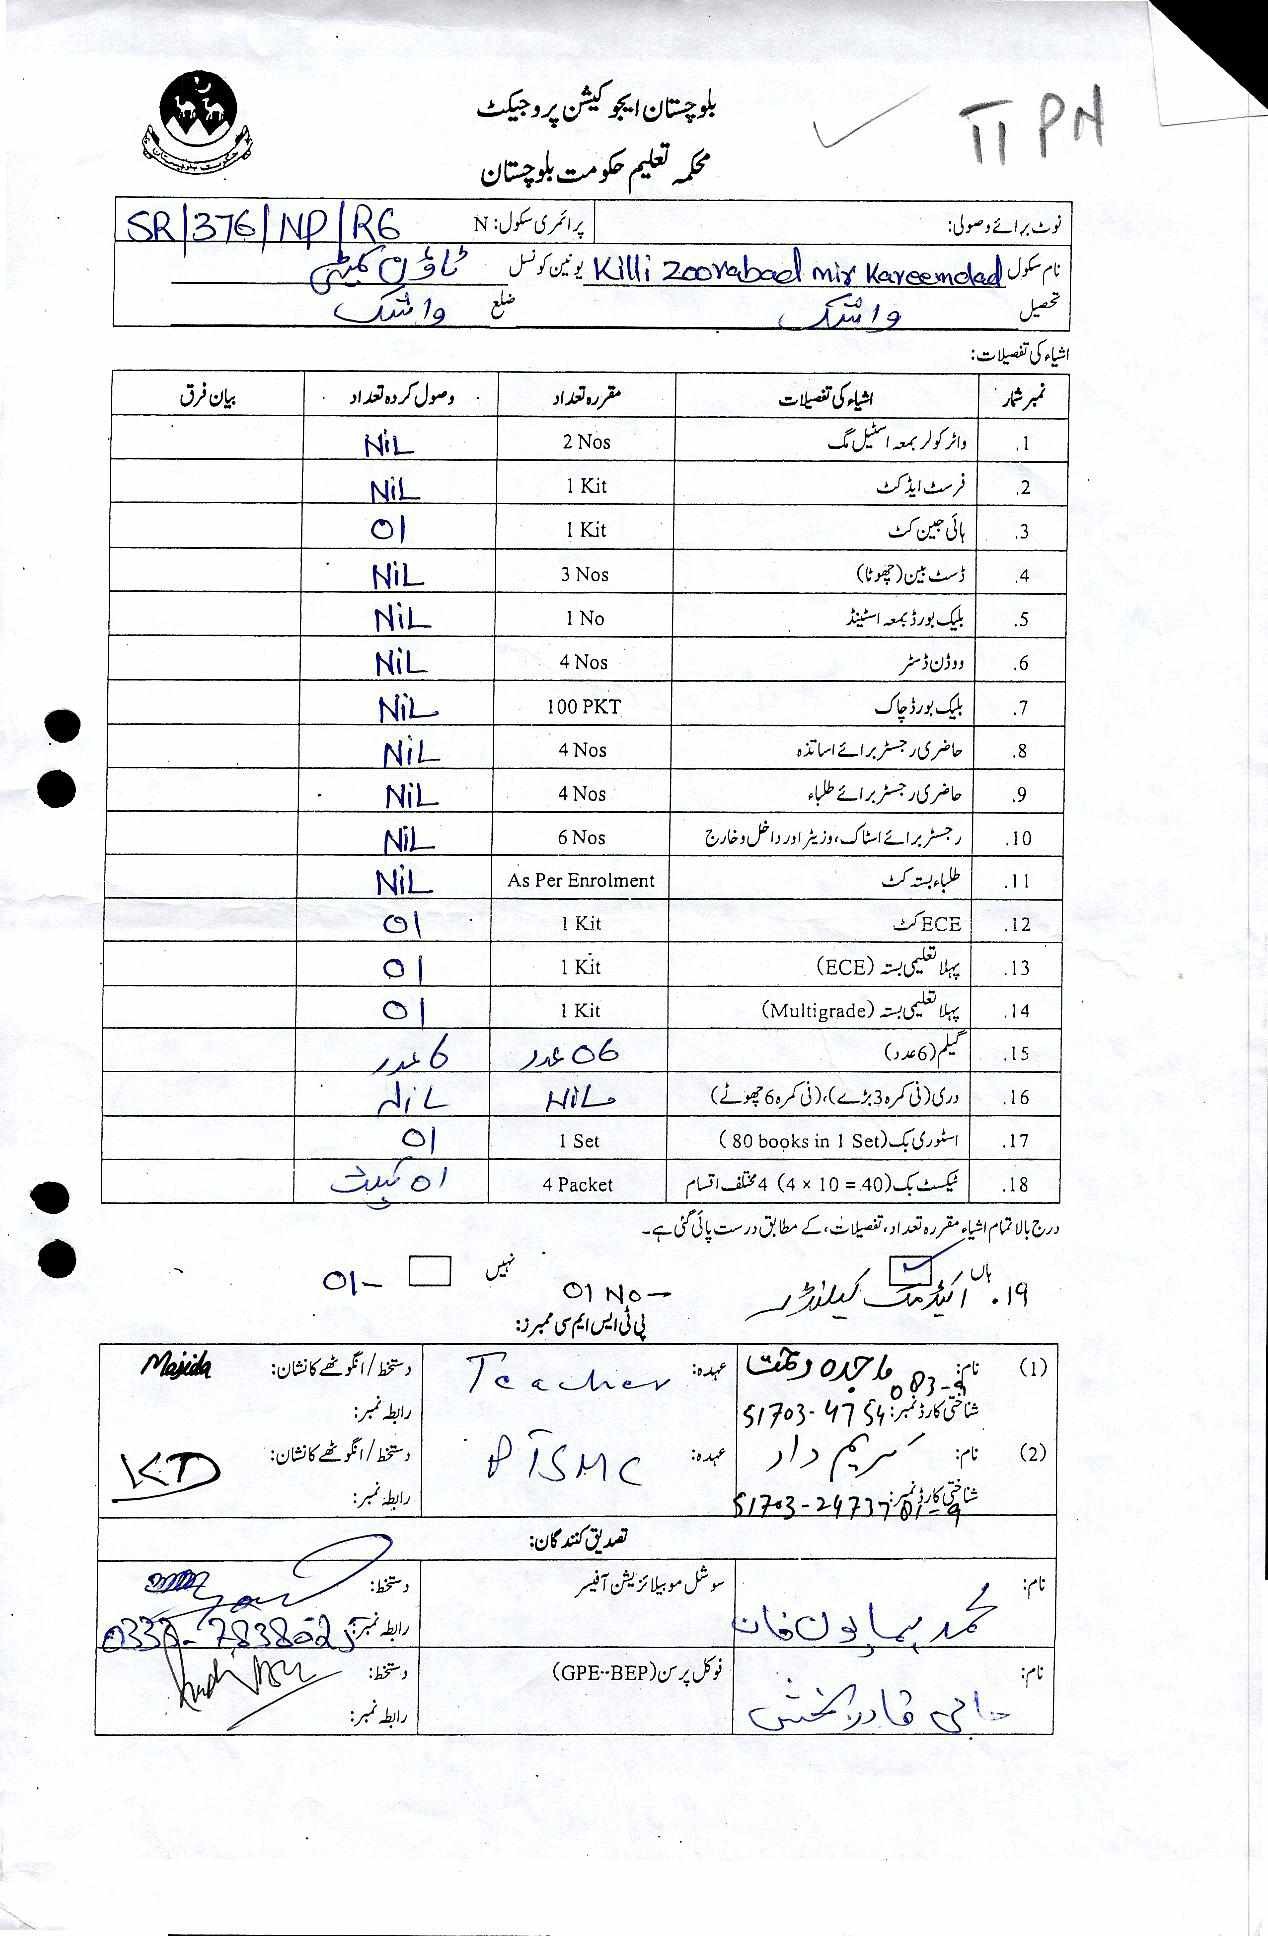 بلوچستان ایجوکیشن پروجیکٹ
محکمہ تعلیم حکومت بلوچستان
II PN
نوٹ برائے وصولی: پرائمری سکول: N SR/376/NP/R6
نام سکول Killi Zoorabad mir Kareemdad یونین کونسل ٹاؤن کمیٹی
تحصیل واشک ضلع واشک
اشیاء کی تفصیلات:
نمبر شمار اشیاء کی تفصیلات مقررہ تعداد وصول کردہ تعداد بیان فرق
1. واٹر کولر بمعہ اسٹیل مگ 2 Nos NiL
2. فرسٹ ایڈ کٹ 1 Kit NiL
3. ہائی جین کٹ 1 Kit 01
4. ڈسٹ بین (چھوٹا) 3 Nos NiL
5. بلیک بورڈ بمعہ اسٹینڈ 1 No NiL
6. ووڈن ڈسٹر 4 Nos NiL
7. بلیک بورڈ چاک 100 PKT NiL
8. حاضری رجسٹر برائے اساتذہ 4 Nos NiL
9. حاضری رجسٹر برائے طلباء 4 Nos NiL
10. رجسٹر برائے اسٹاک، وزیٹر اور داخل و خارج 6 Nos NiL
11. طلباء بستہ کٹ As Per Enrolment NiL
12. ECE کٹ 1 Kit 01
13. پہلا تعلیمی بستہ (ECE) 1 Kit 01
14. پہلا تعلیمی بستہ (Multigrade) 1 Kit 01
15. گیلم (6 عدد) 06 عدد 6 عدد
16. دری (فی کمرہ 3 بڑے)، (فی کمرہ 6 چھوٹے) NiL NiL
17. اسٹوری بک (80 books in 1 Set) 1 Set 01
18. ٹیکسٹ بک (4 × 10 = 40) 4 مختلف اقسام 4 Packet 01
درج بالا تمام اشیاء مقررہ تعداد، تفصیلات، کے مطابق درست پائی گئی ہے۔
ہاں نہیں
19. اکیڈمک کیلنڈر 01 No 01
پی ٹی ایس ایم سی ممبرز:
(1) نام: ماجدہ عہدہ: Teacher دستخط/انگوٹھے کا نشان: Majida
شناختی کارڈ نمبر: 51703-4754083-9 رابطہ نمبر:
(2) نام: کریم داد عہدہ: PTSMC دستخط/انگوٹھے کا نشان: KD
شناختی کارڈ نمبر: 51703-2473701-9 رابطہ نمبر:
تصدیق کنندگان:
نام: محمد ہمایون خان سوشل موبیلائزیشن آفیسر دستخط:
رابطہ نمبر:
نام: حاجی قادر بخش فوکل پرسن (GPE-BEP) دستخط:
رابطہ نمبر: